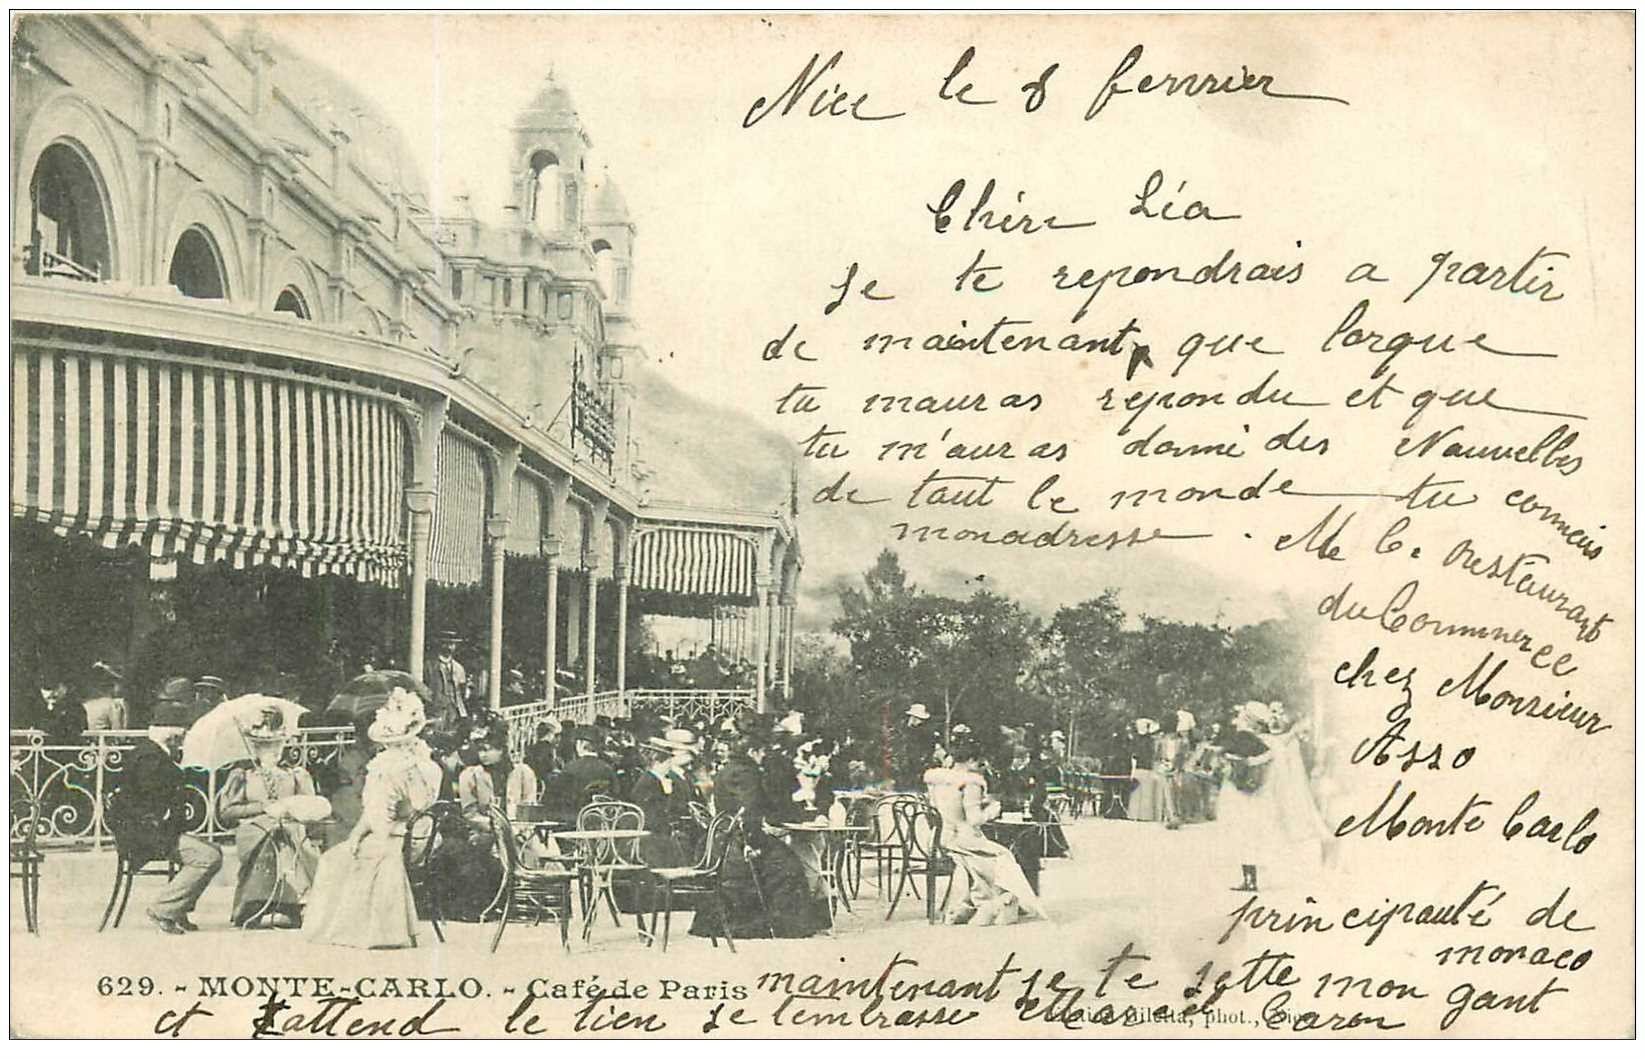 Nice le 8 fevrier
Chère Léa
Je te repondrais a partir
de maintenant que lorque
tu mauras repondu et que
tu m'auras donné des Nouvelles
de tout le monde tu connais
mon adresse. Me C. restaurant
du Commerce
chez Monsieur
Asso
Monte Carlo
principauté de
monaco
629. - MONTE-CARLO. - Café de Paris
maintenant je te jette mon gant
et t'attend le tien je t'embrasse Marcel Caron
Giletta, phot.,